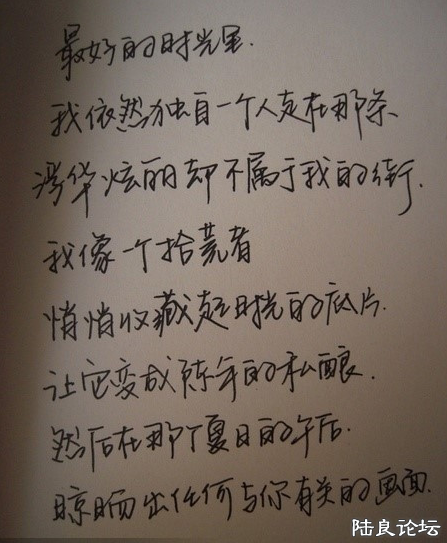 最好的时光里.
我依然独自一个人走在那条
浮华炫丽却不属于我的街.
我像一个拾荒者
悄悄收藏起时光的底片.
让它变成陈年的私酿.
然后在那个夏日的午后.
晾晒出任何与你有关的画面.
陆良论坛